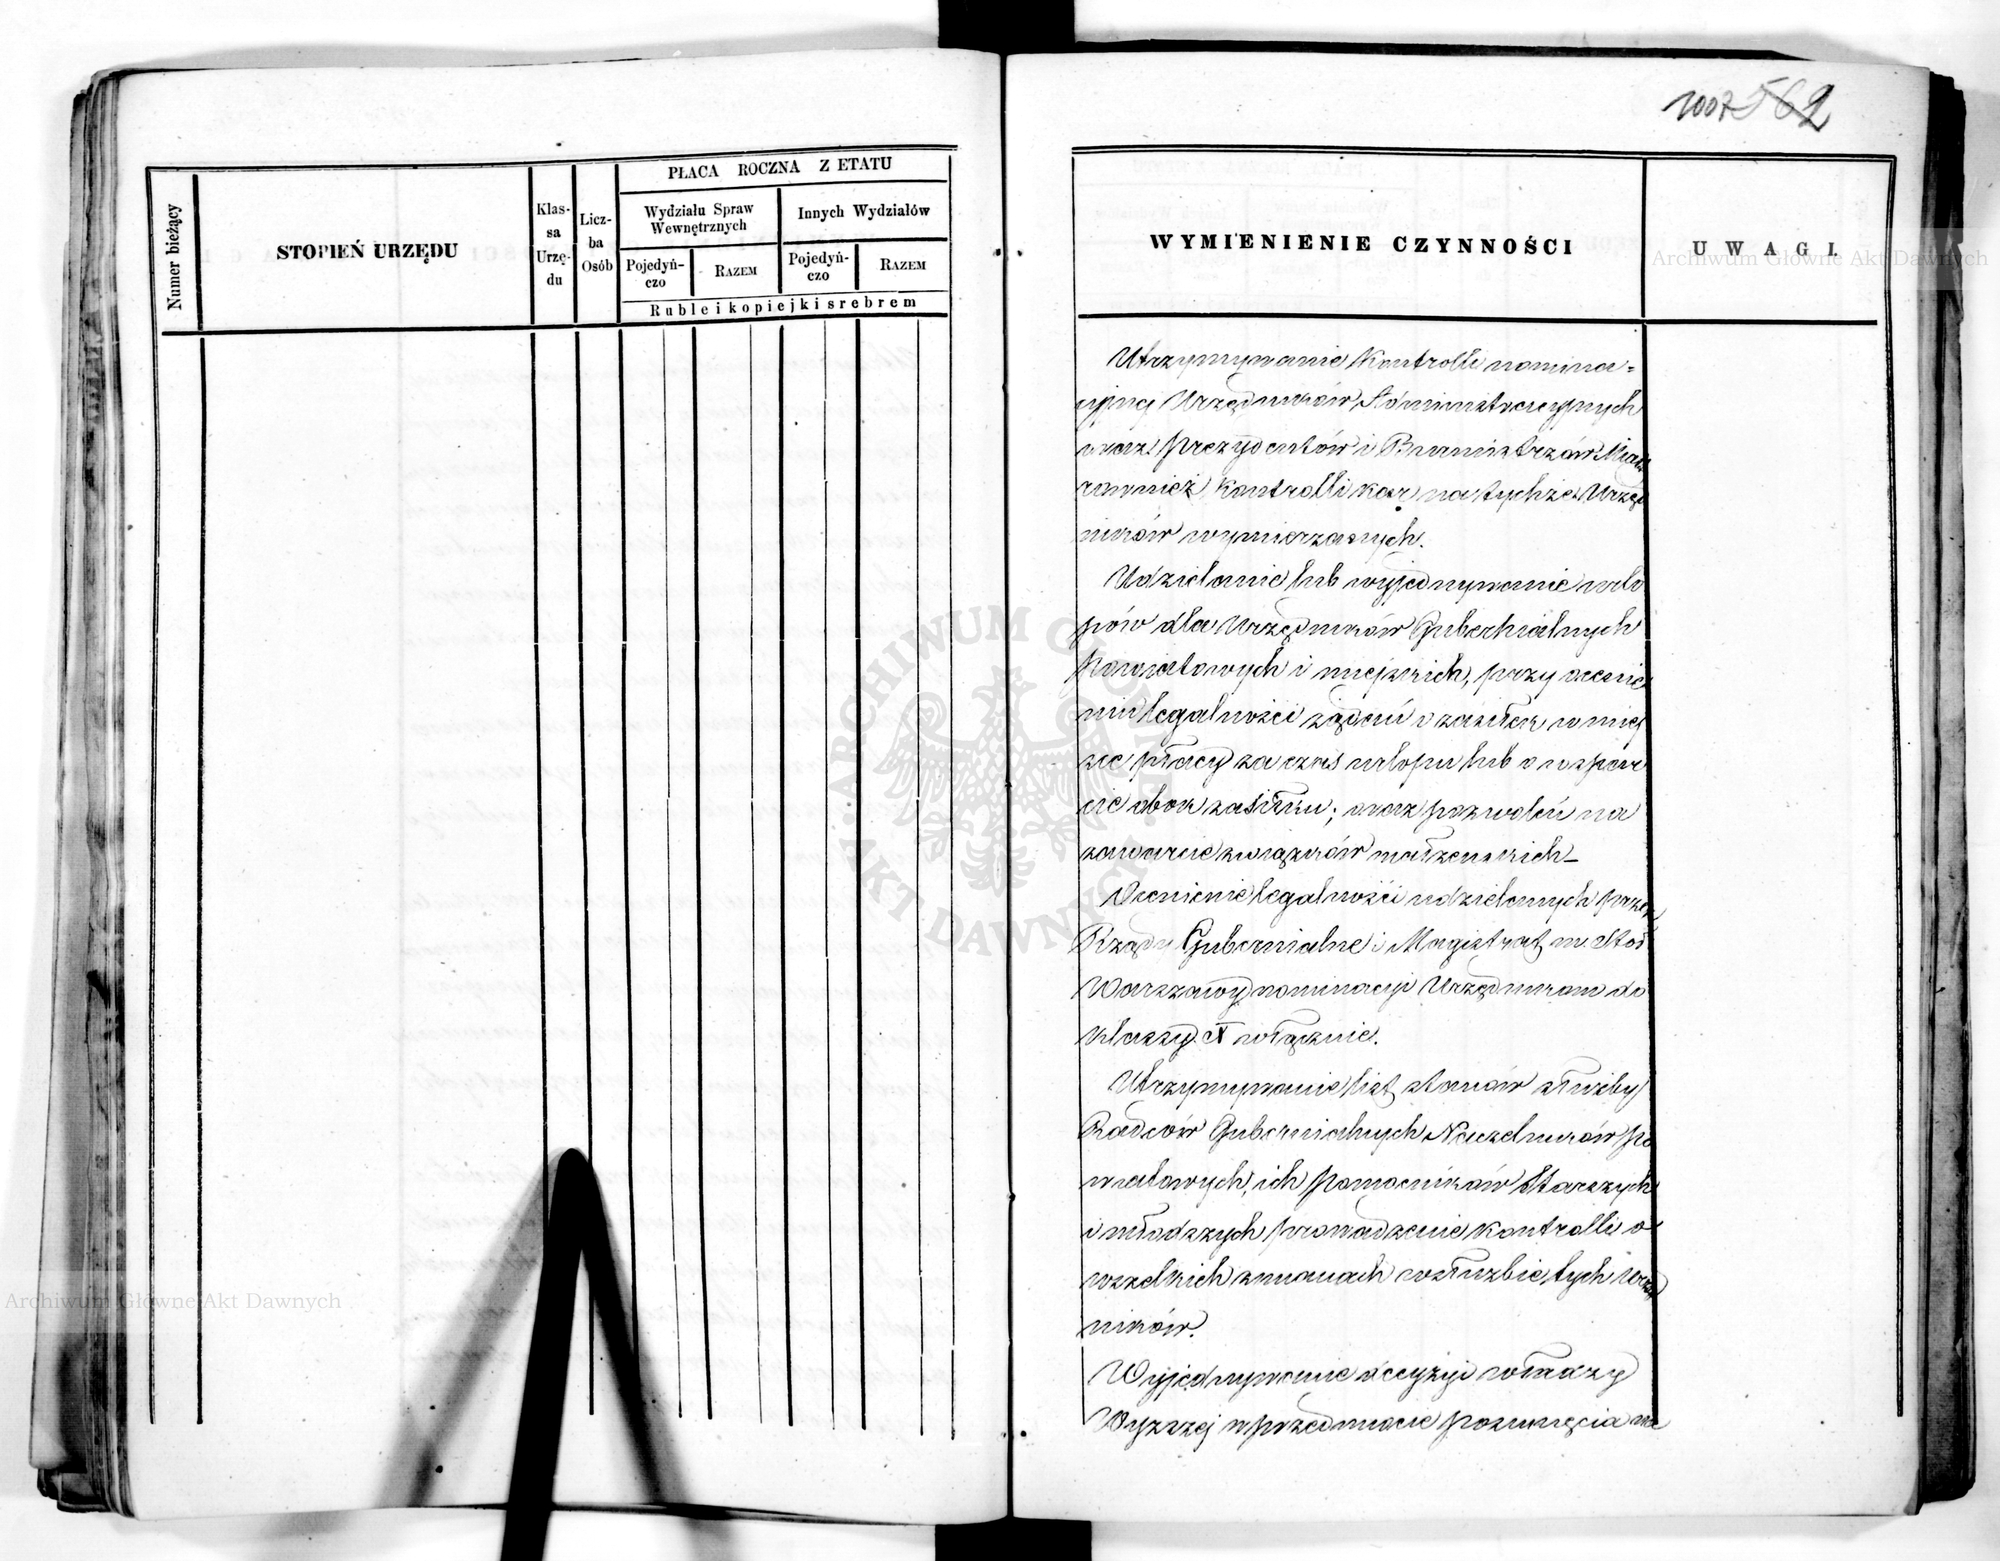 1007 562
PŁACA ROCZNA Z ETATU
Numer bieżący
STOPIEŃ URZĘDU
Klas-
sa
Urzę-
du
Licz-
ba
Osób
Wydziału Spraw
Wewnętrznych
Innych Wydziałów
Pojedyń-
czo
RAZEM
Pojedyń-
czo
RAZEM
Ruble i kopiejki srebrem
WYMIENIENIE CZYNNOŚCI
UWAGI.
Utrzymywanie Kontrolli nomina=
cyjnej Urzędników Administracyjnych
oraz Prezydentów i Burmistrzów Miast
rownież Kontrolli kar na tychże Urzęd
ników wymierzanych.
Udzielanie lub wyjednywanie urlo
pów dla Urzędników Gubernialnych
Powiatowych i miejskich, przy ocenie
niu legalności żądań o zasiłek w miej
sce płacy za czas urlopu lub o wspar
cie obok zasiłku; oraz pozwoleń na
zawarcie związków małżenskich_
Ocenienie legalności udzielonych przez
Rządy Gubernialne i Magistrat m. Stoł
Warszawy nominacyi Urzędnikom do
Klassy X włącznie.
Utrzymywanie list stanów służby
Radców Gubernialnych Naczelników Po
wiatowych, ich Pomocników Starszych
i młodszych prowadzenie kontrolli o
wszelkich zmianach w służbie tych Urzęd
ników.
Wyjednywanie decyzyi władzy
Wyższej w przedmiocie posunięcia na
Archiwum Główne Akt Dawnych
Archiwum Główne Akt Dawnych
ARCHIWUM GŁÓWNE AKT DAWNYCH